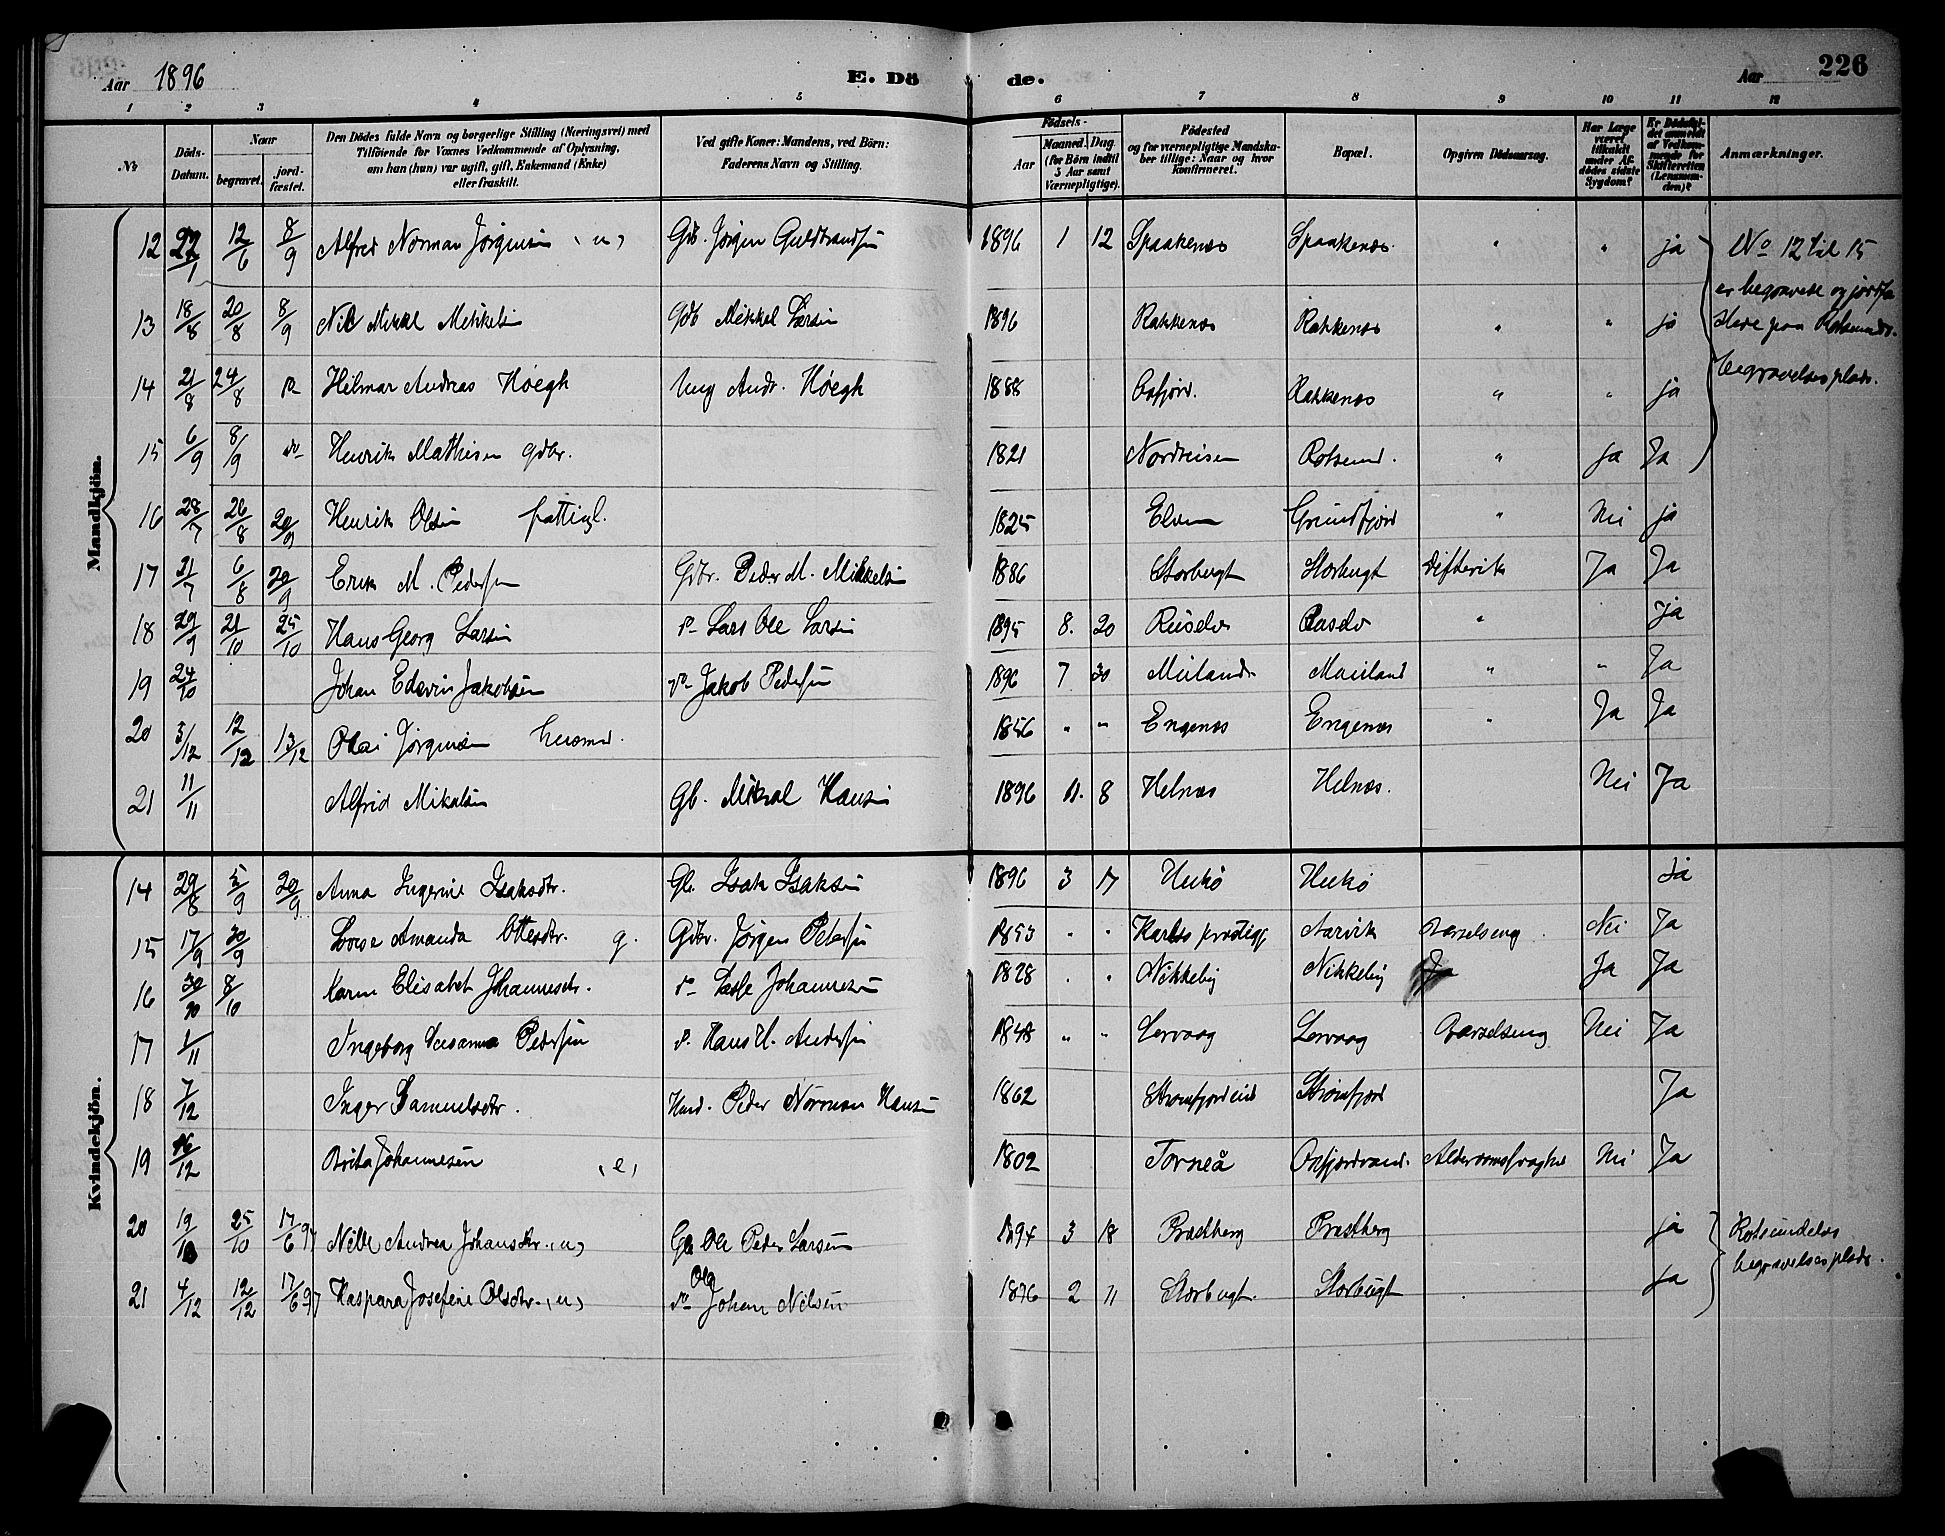 Aar 1896 E. Döde. Aar 226
1 2 3 4 5 6 7 8 9 10 11 12
№ Döds-Datum. Naar begravet. jordfæstet. Den Dödes fulde Navn og borgerlige Stilling (Næringsvei) med Tilføiende for Voxnes Vedkommende af Oplysning, om han (hun) var ugift, gift, Enkemand (Enke) eller fraskilt. Ved gifte Koner: Mandens, ved Børn: Faderens Navn og Stilling. Fødsels- Aar Maaned. Dag. (for Børn indtil 5 Aar samt Værnepligtige). Födested og for værnepligtige Mandskaber tillige: Naar og hvor konfirmeret. Bopæl. Opgiven Dödsaarsag. Har Læge været tilkaldt under Afdødes sidste Sygdom? Er Dødsfaldet anmeldt af Vedkommende for Skifteretten (Lensmanden)? Anmærkninger.
Mandkjön.
12 27/1 12/6 8/9 Alfred Norman Jørgensen (u) Gdb. Jørgen Guldbrandsen 1896 1 12 Spaakenæs Spaakenæs " " ja No 12 til 15
er begravede og jordfæ
13 18/8 20/8 8/9 Nils Mikkel Mikkelsen Gdb Mikkel Larsen 1896 Rakkenæs Rakkenæs " " ja stede paa Rotsunds
begravelsesplads.
14 21/8 24/8 Hilmar Andreas Høegh Ung Andr. Høegh 1888 Oxfjord. Rakkenæs " " ja
15 6/9 8/9 do Henrik Mathisen gdbr. 1821 Nordreisen Rotsund. " Ja Ja
16 28/7 26/8 20/9 Henrik Olsen fattigl. 1825 Elven Grundfjord " Nei ja
17 31/7 6/8 20/9 Erik M. Pedersen Gdbr. Peder M. Mikkelsen 1886 Storbugt Storbugt Difterik Ja Ja
18 29/9 21/10 25/10 Hans Georg Larsen do Lars Ole Larsen 1895 8. 20 " ja
19 24/10 Johan Edevin Jakobsen do Jakob Pedersen 1896 7 30 Meiland Maeiland " " Ja
20 3/12 12/12 13/12 Olai Jørgensen husmd. 1856 " " Engenæs Engenæs " Ja Ja
21 11/11 Alfrid Mikalsen Gb. Mikal Hansen 1896 11. 8 Helnæs Helnæs. Nei Ja
Kvindekjön.
14 29/8 5/9 20/9 Anna Ingerine Isaksdtr. Gb. Isak Isaksen 1896 3 17 Hukø Hukø Ja
15 17/9 30/9 Lovise Amanda Ottesdtr. g. Gdbr. Jørgen Petersen 1853 " " Karlsø Aarvik Barselseng. Nei Ja
16 30/90 8/10 Karen Elisabet Johannesdr. do Lasse Johannesen 1828 . . Nikkeby Nikkeby Ja Ja
17 1/11 Ingeborg Susanna Pedersen do Hans H. Andersen 1848 " " Lervaag Lervaag Barselseng Nei Ja
18 7/12 Inger Samuelsdtr. Husd. Peder Norman Hansen 1862 Strømfjordeid Strømfjord Ja
19 16/12 Brita Johannesen (e) 1802 Torneå Oxfjordvand. Alderdomssvaghed Nei Ja
20 19/10 25/10 17/6 97 Nille Andrea Johansdtr. (u) Gb Ole Peder Larsen 1894 3 18 Præstberg Præstberg ja Rotsundelvs
begravelsesplads.
21 4/12 12/12 17/6 97 Kaspara Josefine Olsdtr. (u) do Ole Johan Nilsen 1896 2 11 Storbugt. Storbugt ja